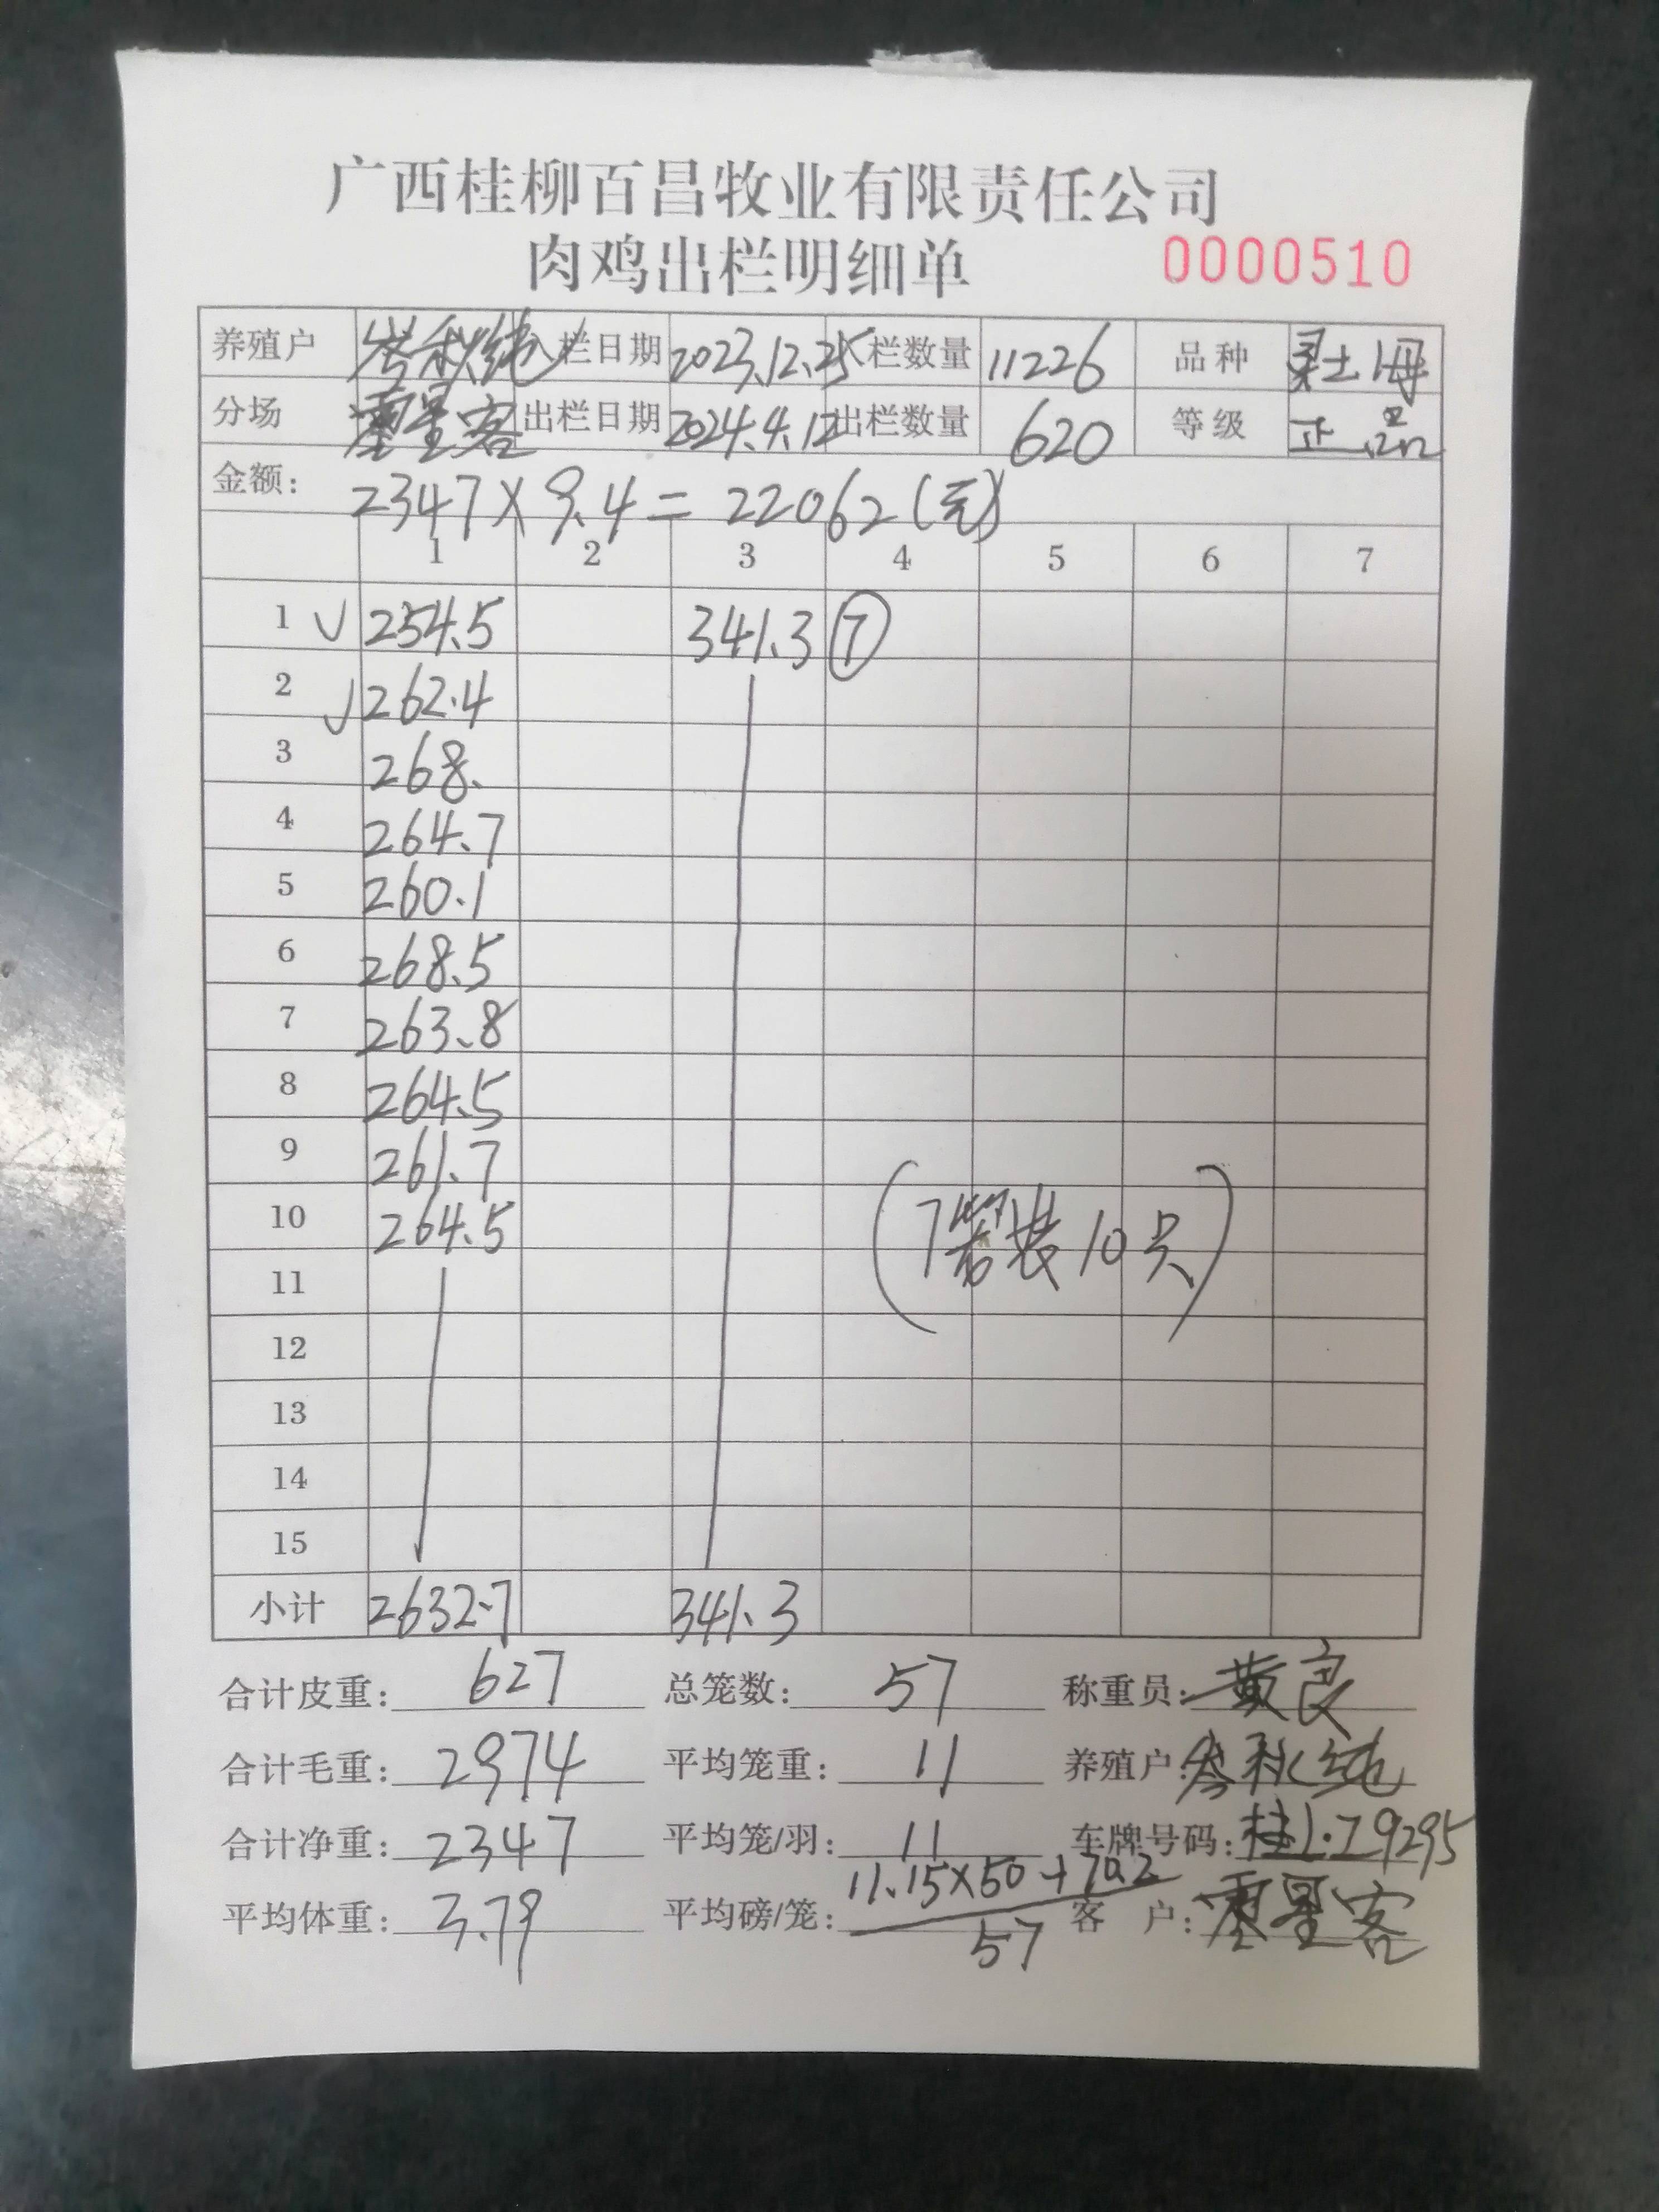 广西桂柳百昌牧业有限责任公司
肉鸡出栏明细单 0000510
养殖户 岑秋纯 入栏日期 2023.12.25 入栏数量 11226 品种 土母
分场 客 出栏日期 2024.4.12 出栏数量 620 等级 正品
金额: 2347×9.4=22062(元)
1 2 3 4 5 6 7
1 √ 254.5 341.3 ⑦
2 √ 262.4
3 268.
4 264.7
5 260.1
6 268.5
7 263.8
8 264.5
9 261.7
10 264.5
(7笼装10只)
11
12
13
14
15
小计 2632.7 341.3
合计皮重: 627 总笼数: 57 称重员: 黄良
合计毛重: 2974 平均笼重: 11 养殖户: 岑秋纯
合计净重: 2347 平均笼/羽: 11 车牌号码: 桂L·Z9295
11.15×50+70.2
平均体重: 3.79 平均磅/笼: 57 客 户: 客